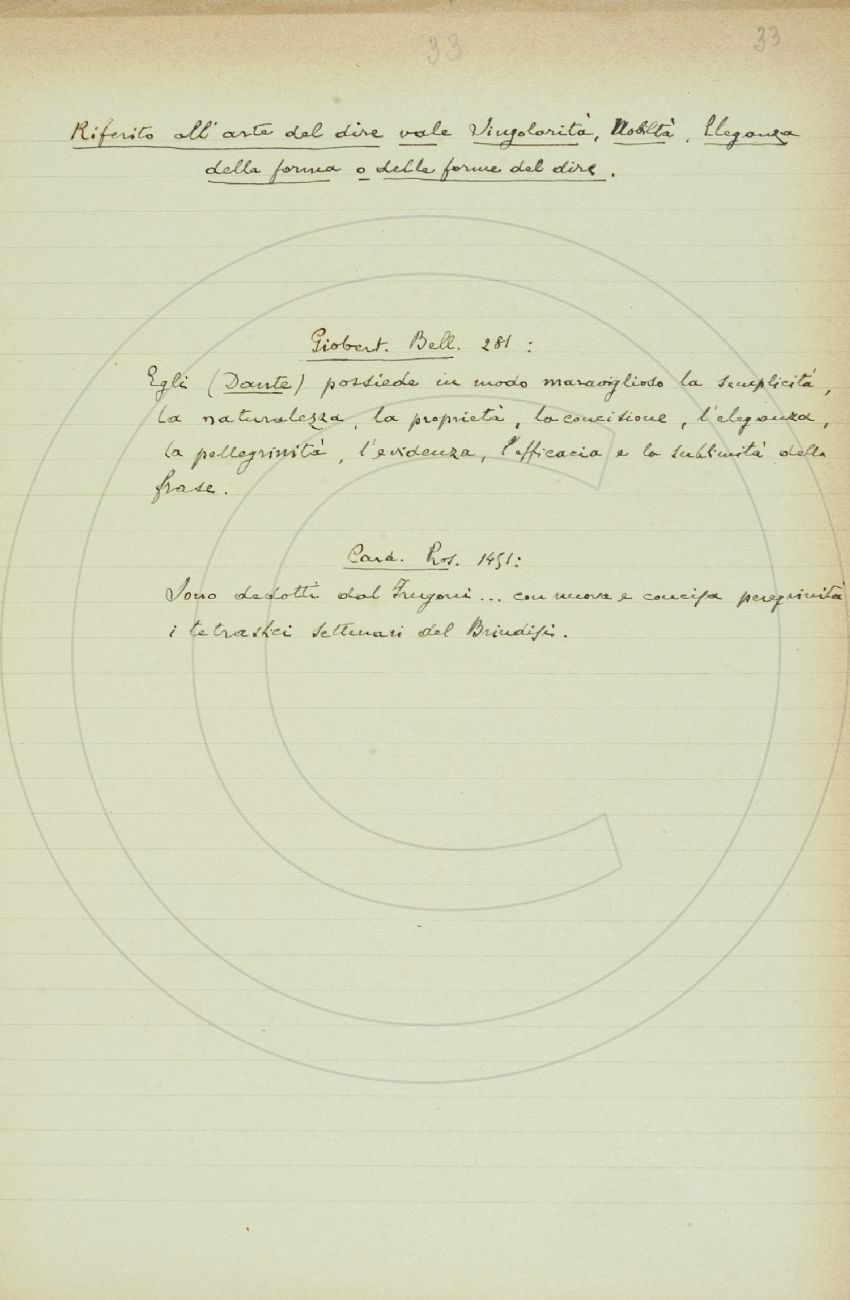 33 33
Riferito all' arte del dire vale Singolarità, Nobiltà, Eleganza
della forma o delle forme del dire.
Giobert. Bell. 281:
Egli (Dante) possiede in modo maraviglioso la semplicità,
la naturalezza, la proprietà, la concisione, l'eleganza,
la pellegrinità, l'evidenza, l'efficacia e la sublimità della
frase.
Card. Pros. 1451:
Sono dedotti dal Frugoni... con nuova e concisa peregrinità
i tetrastici settenari del Brindisi.